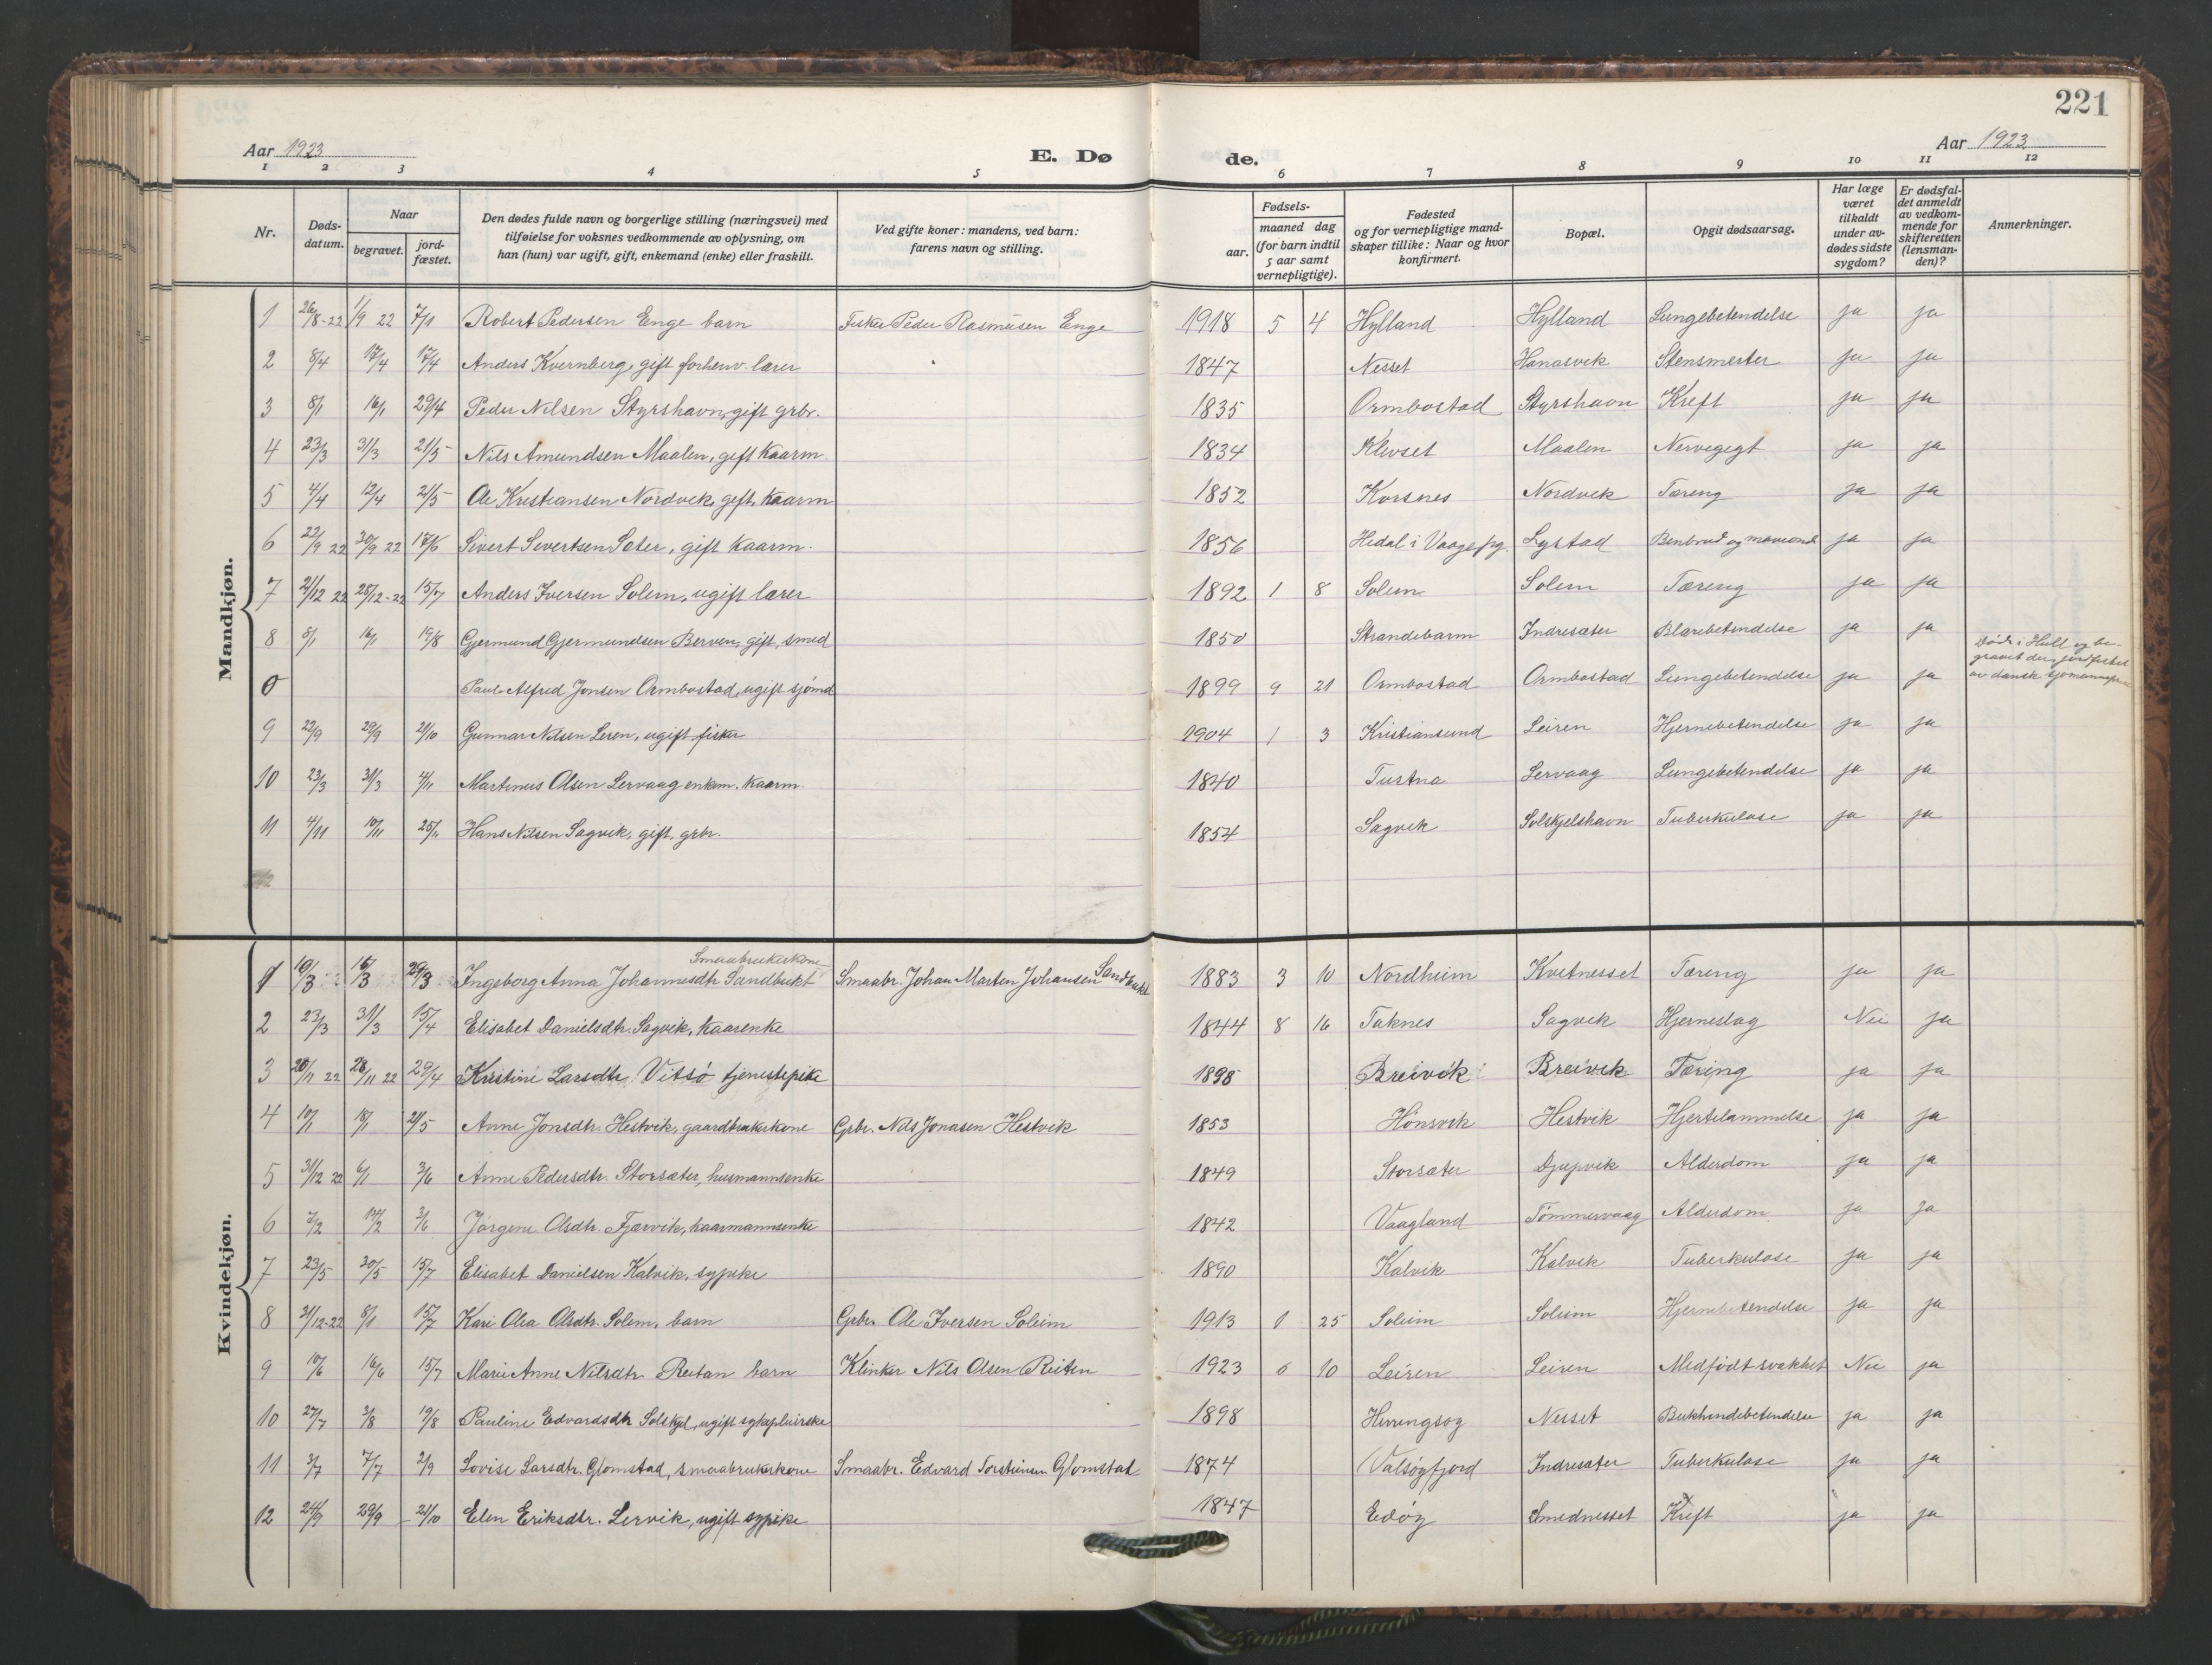 221
Aar 1923
E. Dø
de.
Aar 1923
1 2 3 4 5 6 7 8 9 10 11 12
Nr.
Døds-
datum.
Naar
begravet.
jord-
fæstet.
Den dødes fulde navn og borgerlige stilling (næringsvei) med
tilføielse for voksnes vedkommende av oplysning, om
han (hun) var ugift, gift, enkemand (enke) eller fraskilt.
Ved gifte koner: mandens, ved barn:
farens navn og stilling.
Fødsels-
aar.
maaned dag
(for barn indtil
5 aar samt
vernepligtige).
Fødested
og for vernepligtige mand-
skaper tillike: Naar og hvor
konfirmert.
Bopæl.
Opgit dødsaarsag.
Har læge
været
tilkaldt
under av-
dødes sidste
sygdom?
Er dødsfal-
det anmeldt
av vedkom-
mende for
skifteretten
(lensman-
den)?
Anmerkninger.
Mandkjøn.
1 26/8-22 1/9 22 7/1 Robert Pedersen Enge barn Fisker Peder Rasmusen Enge 1918 5 4 Hylland Hylland Lungebetendelse ja ja
2 8/4 17/4 17/4 Anders Kvernberg, gift forhenv. lærer 1847 Nesset Hanasvik Stensmerter ja ja
3 8/1 16/1 29/4 Peder Nilsen Styrshavn, gift grbr. 1835 Ormbostad Styrshavn Kreft ja ja
4 23/3 31/3 21/5 Nils Amundsen Maalen, gift kaarm. 1834 Klevset Maalen Nervegigt ja ja
5 4/4 12/4 21/5 Ole Kristiansen Nordvik, gift, kaarm 1852 Korsnes Nordvik Tæring ja ja
6 22/9 22 30/9 22 17/6 Sivert Sivertsen Sæter, gift kaarm. 1856 Hedal i Vaage prg. Lystad Benbrud og maveond ja ja
7 21/12 22 28/12-22 15/7 Anders Iversen Solem, ugift lærer 1892 1 8 Solem Solem Tæring ja ja
8 8/1 16/1 19/8 Gjermund Gjermundsen Berven, gift, smed 1850 Strandebarm Indresæter Blærebetendelse ja ja
0 Paul Alfred Jonsen Ormbostad, ugift sjømd 1899 9 21 Ormbostad Ormbostad Lungebetendelse ja ja Døde i Hull og be-
gravet der, jordfestet
av dansk sjømannsprest
9 22/9 29/9 21/10 Gunnar Nilsen Leren, ugift fisker 1904 1 3 Kristiansund Leiren Hjernebetendelse ja ja
10 23/3 31/3 4/11 Martinus Olsen Lervaag enkem. kaarm. 1840 Tustna Lervaag Lungebetendelse ja ja
11 4/11 10/11 25/11 Hans Nilsen Sagvik, gift, grbr. 1854 Sagvik Solskjelshavn Tuberkulose ja ja
Kvindekjøn.
Smaabrukerkone
1 10/3 16/3 29/3 Ingeborg Anna Johannesdtr Sandbukt Smaabr. Johan Marten Johansen Sandbukt 1883 3 10 Nordheim Kvitnesset Tæring ja ja
2 23/3 31/3 15/4 Elisabet Danielsdtr. Sagvik, kaarenke 1844 8 16 Taknes Sagvik Hjerneslag Nei ja
3 20/11 22 28/11 22 29/4 Kristine Larsdtr. Vitsø tjenestepike 1898 Breivik Breivik Tæring ja ja
4 10/1 18/1 21/5 Anne Jonsdtr. Hestvik, gaardbrukerkone Grbr. Nils Jonasen Hestvik 1853 Hønsvik Hestvik Hjertelammelse ja ja
5 31/12 22 6/1 3/6 Anne Pedersdtr. Storsæter, husmannsenke 1849 Storsæter Djupvik Alderdom ja ja
6 7/2 14/2 3/6 Jørgine Olsdtr. Fjærvik, kaarmannsenke 1842 Vaagland Tømmervaag Alderdom ja ja
7 23/5 30/5 15/7 Elisabet Danielsen Kalvik, sypike 1890 Kalvik Kalvik Tuberkulose ja ja
8 31/12-22 8/1 15/7 Kari Olea Olsdtr. Solem, barn Grbr. Ole Iversen Soleim 1913 1 25 Soleim Soleim Hjernebetendelse ja ja
9 10/6 16/6 15/7 Marie Anne Nilsdtr. Reitan barn Klinker Nils Olsen Reiten 1923 6 10 Leiren Leiren Medfødt svakhet Nei ja
10 27/7 3/8 19/8 Pauline Edvardsdtr Solskjel, ugift sykepleierske 1898 Nesset Bukhindebetendelse ja ja
11 3/7 7/7 2/9 Lovise Larsdtr. Glomstad, smaabrukerkone Smaabr. Edvard Torsteinsen Glomstad 1874 Valsøyfjord Indresæter Tuberkulose ja ja
12 24/9 29/9 21/10 Elen Eriksdtr. Lervik, ugift sypike 1847 Edøy Smednesset Kreft ja ja